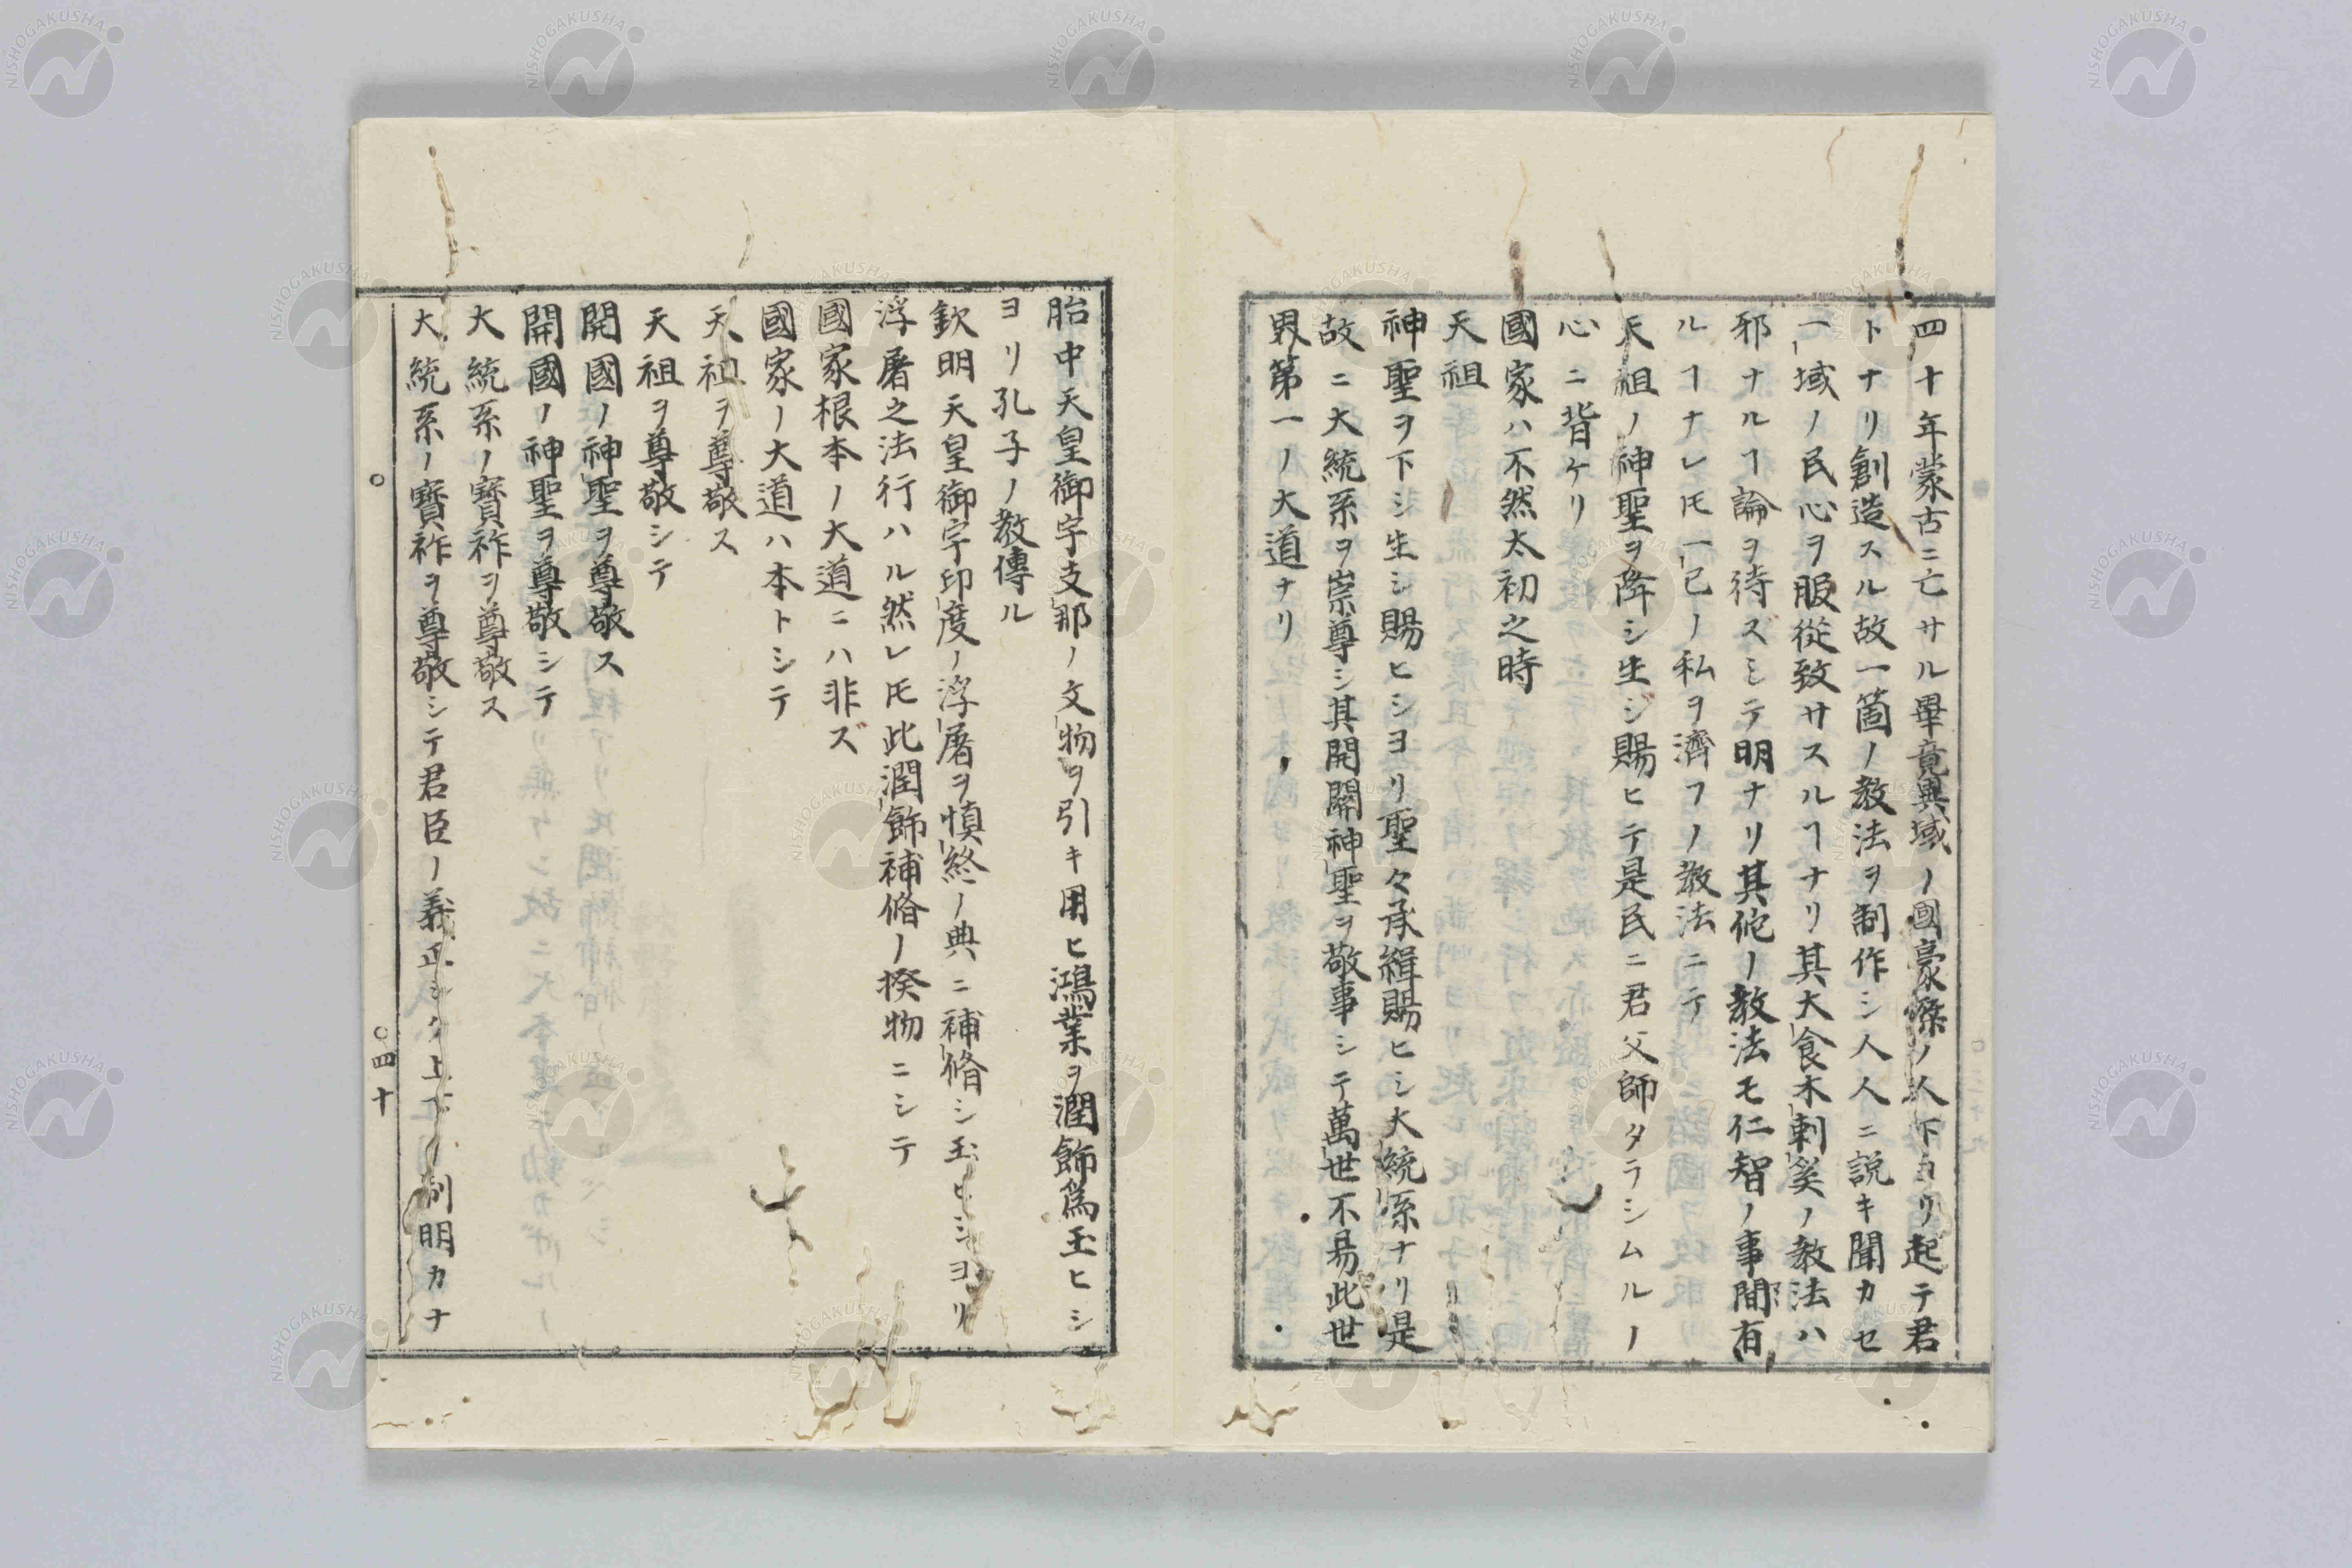 四十年蒙古ニ亡サル畢竟異域ノ國豪傑ノ人下ヨリ起テ君
トナリ創造スル故一箇ノ教法ヲ制作シ人人ニ説キ聞カセ
一域ノ民心ヲ服從致サスルヿナリ其大食木剌奚ノ教法ハ
邪ナルヿ論ヲ待ズシテ明ナリ其他ノ教法モ仁智ノ事間有
ルヿナレ𪜈一己ノ私ヲ濟フノ教法ニテ
天祖ノ神聖ヲ降シ生ジ賜ヒテ是民ニ君父師タラシムルノ
心ニ背ケリ
國家ハ不然太初之時
天祖
神聖ヲ下シ生シ賜ヒシヨリ聖々承緝賜ヒシ大統系ナリ是
故ニ大統系ヲ崇尊シ其開闢神聖ヲ敬事シテ萬世不易此世
界第一ノ大道ナリ
胎中天皇御宇支那ノ文物ヲ引キ用ヒ鴻業ヲ潤飾爲玉ヒシ
ヨリ孔子ノ教傳ル
欽明天皇御宇印度ノ浮屠ヲ慎終ノ典ニ補脩シ玉ヒシヨリ
浮屠之法行ハル然レ𪜈此潤飾補脩ノ揆物ニシテ
國家根本ノ大道ニハ非ズ
國家ノ大道ハ本トシテ
天祖ヲ尊敬ス
天祖ヲ尊敬シテ
開國ノ神聖ヲ尊敬ス
開國ノ神聖ヲ尊敬シテ
大統系ノ寶祚ヲ尊敬ス
大統系ノ寶祚ヲ尊敬シテ君臣ノ義正シク上下ノ制明カナ
四十